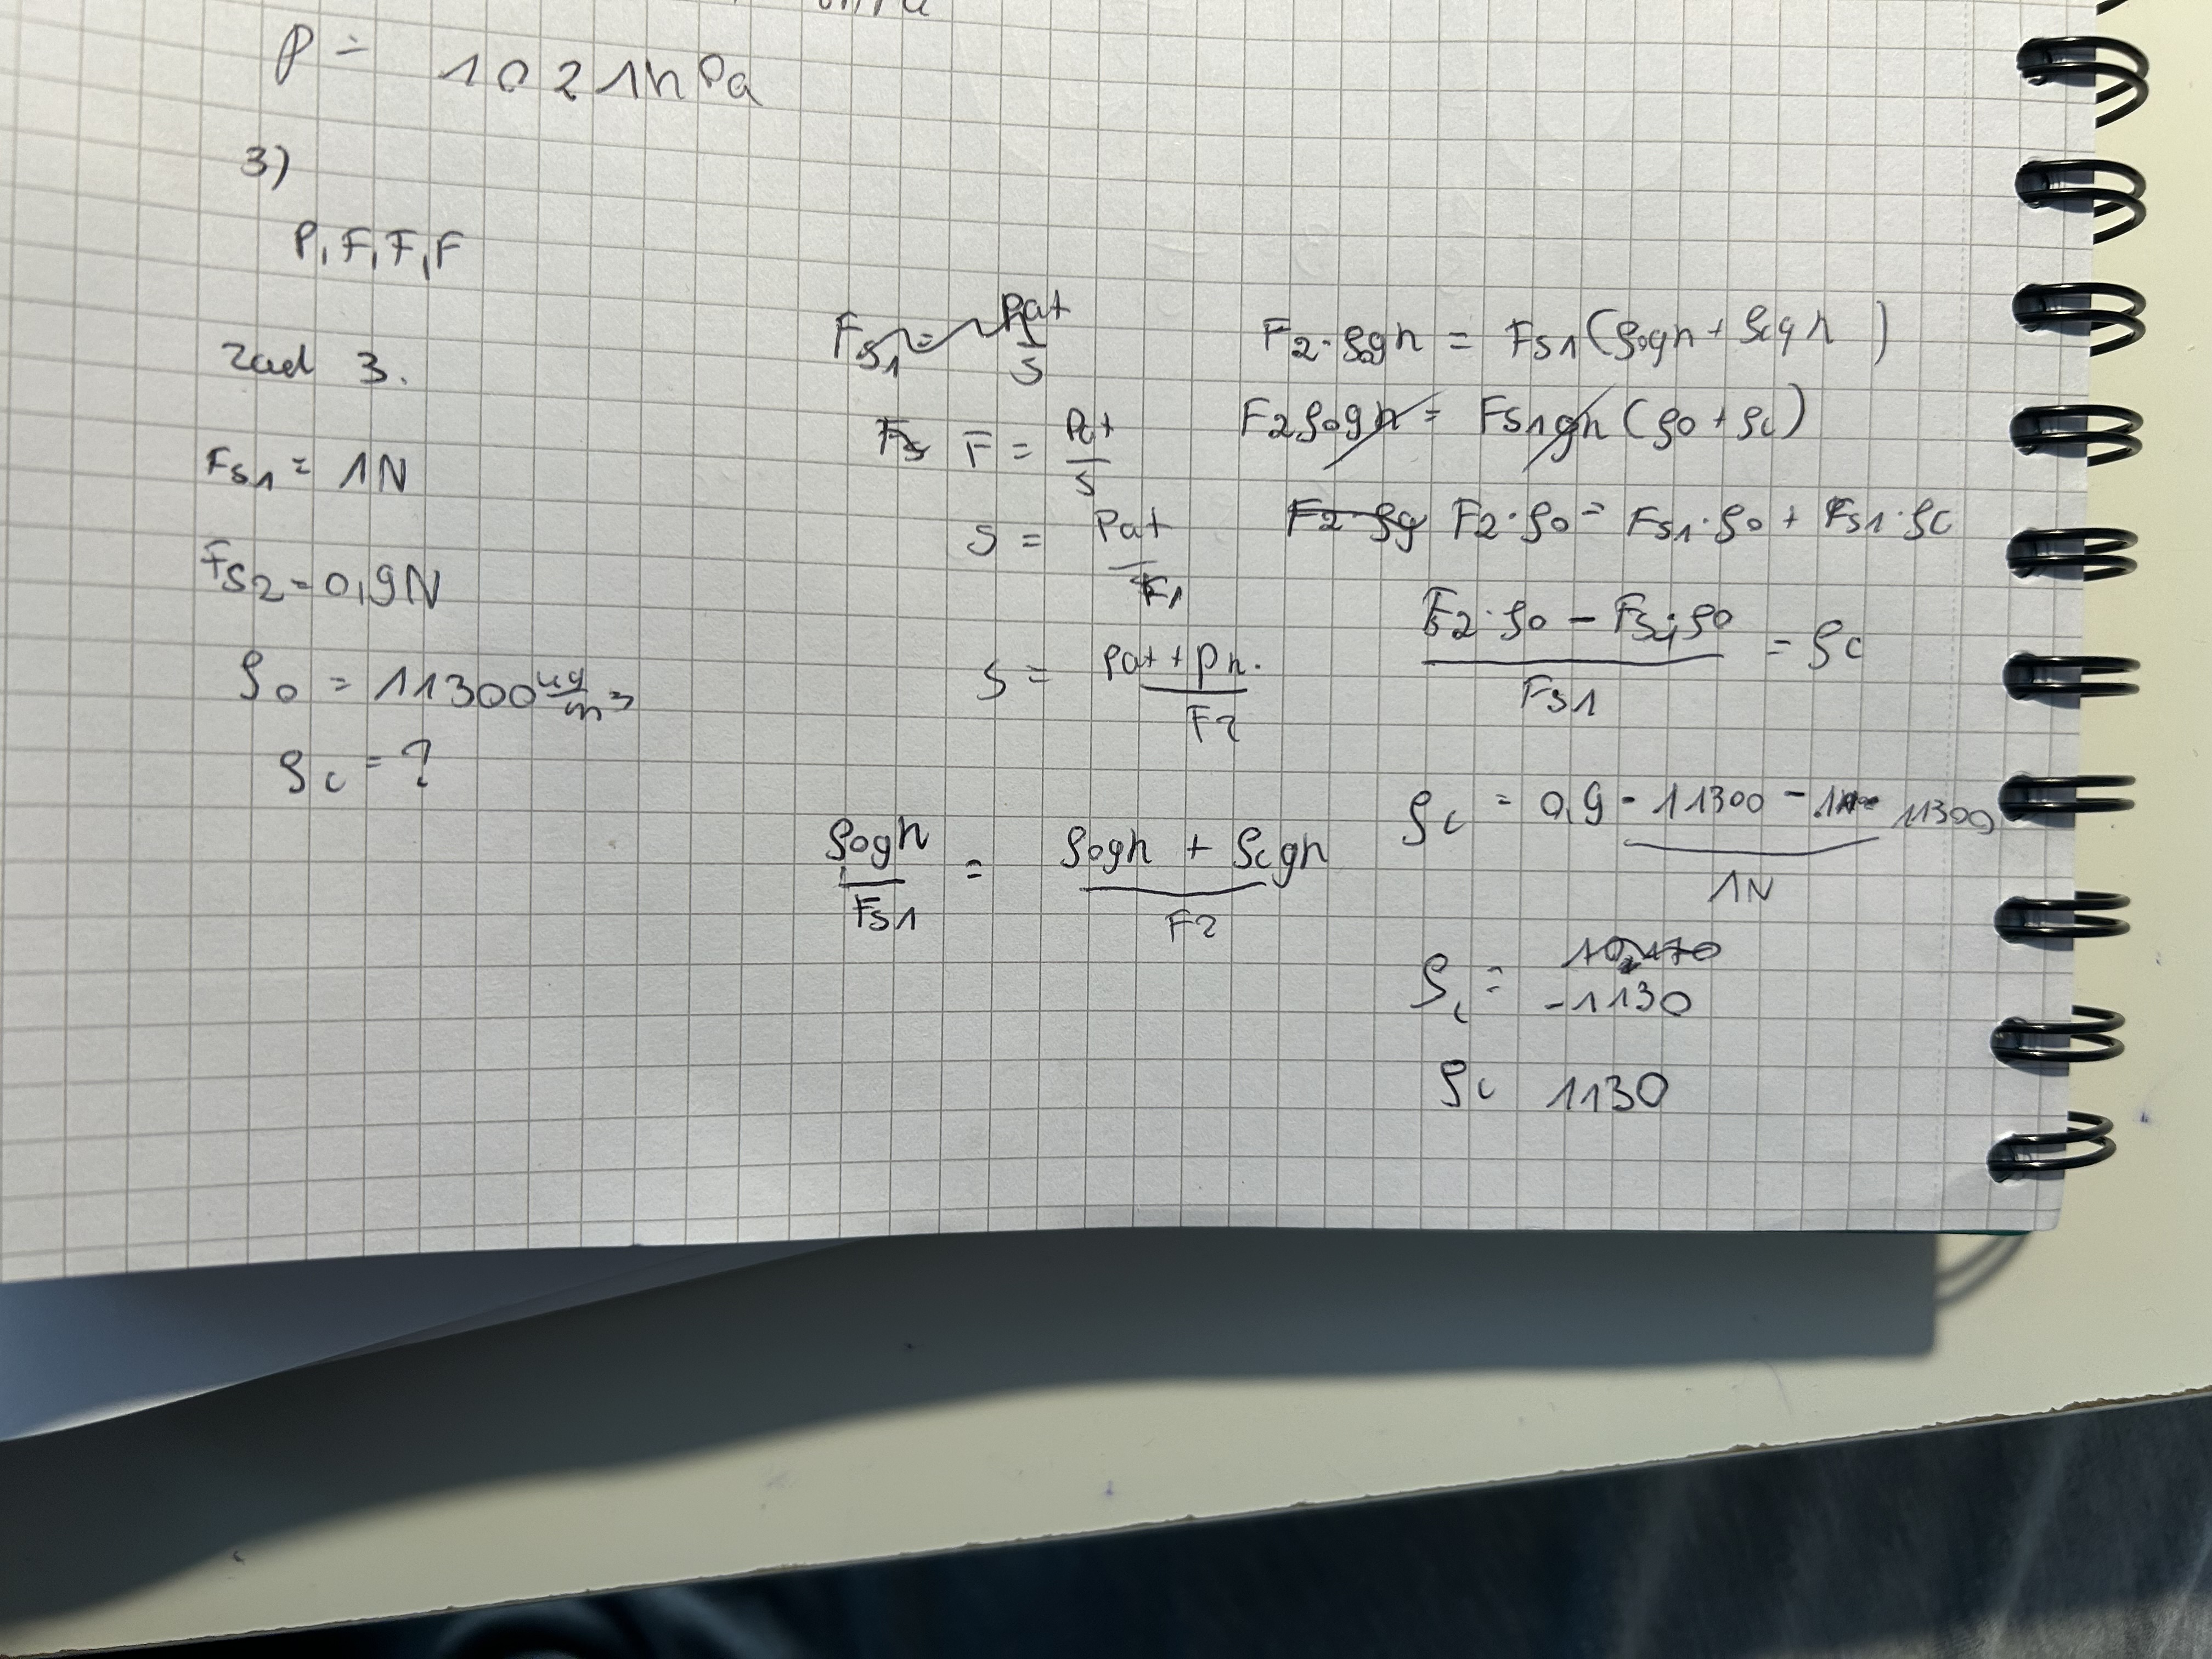 p = 1021hPa
3)
P, F, F, F
Zad 3.
Fs1 = 1N
Fs2 = 0,9N
ρ0 = 11300 kg/m3
ρc = ?
Fs1 = Pat/S
F = Pat/S
S = Pat/F1
S = Pat + Ph./F2
ρ0gh/Fs1 = ρ0gh + ρcgh/F2
F2·ρ0gh = Fs1(ρ0gh + ρcgh)
F2ρ0gh = Fs1gh(ρ0 + ρc)
F2·ρg F2·ρ0 = Fs1·ρ0 + Fs1·ρc
F2·ρ0 - Fs1·ρ0/Fs1 = ρc
ρc = 0,9 · 11300 - 1 · 11300/1N
ρc = 10,170 -1130
ρc 1130